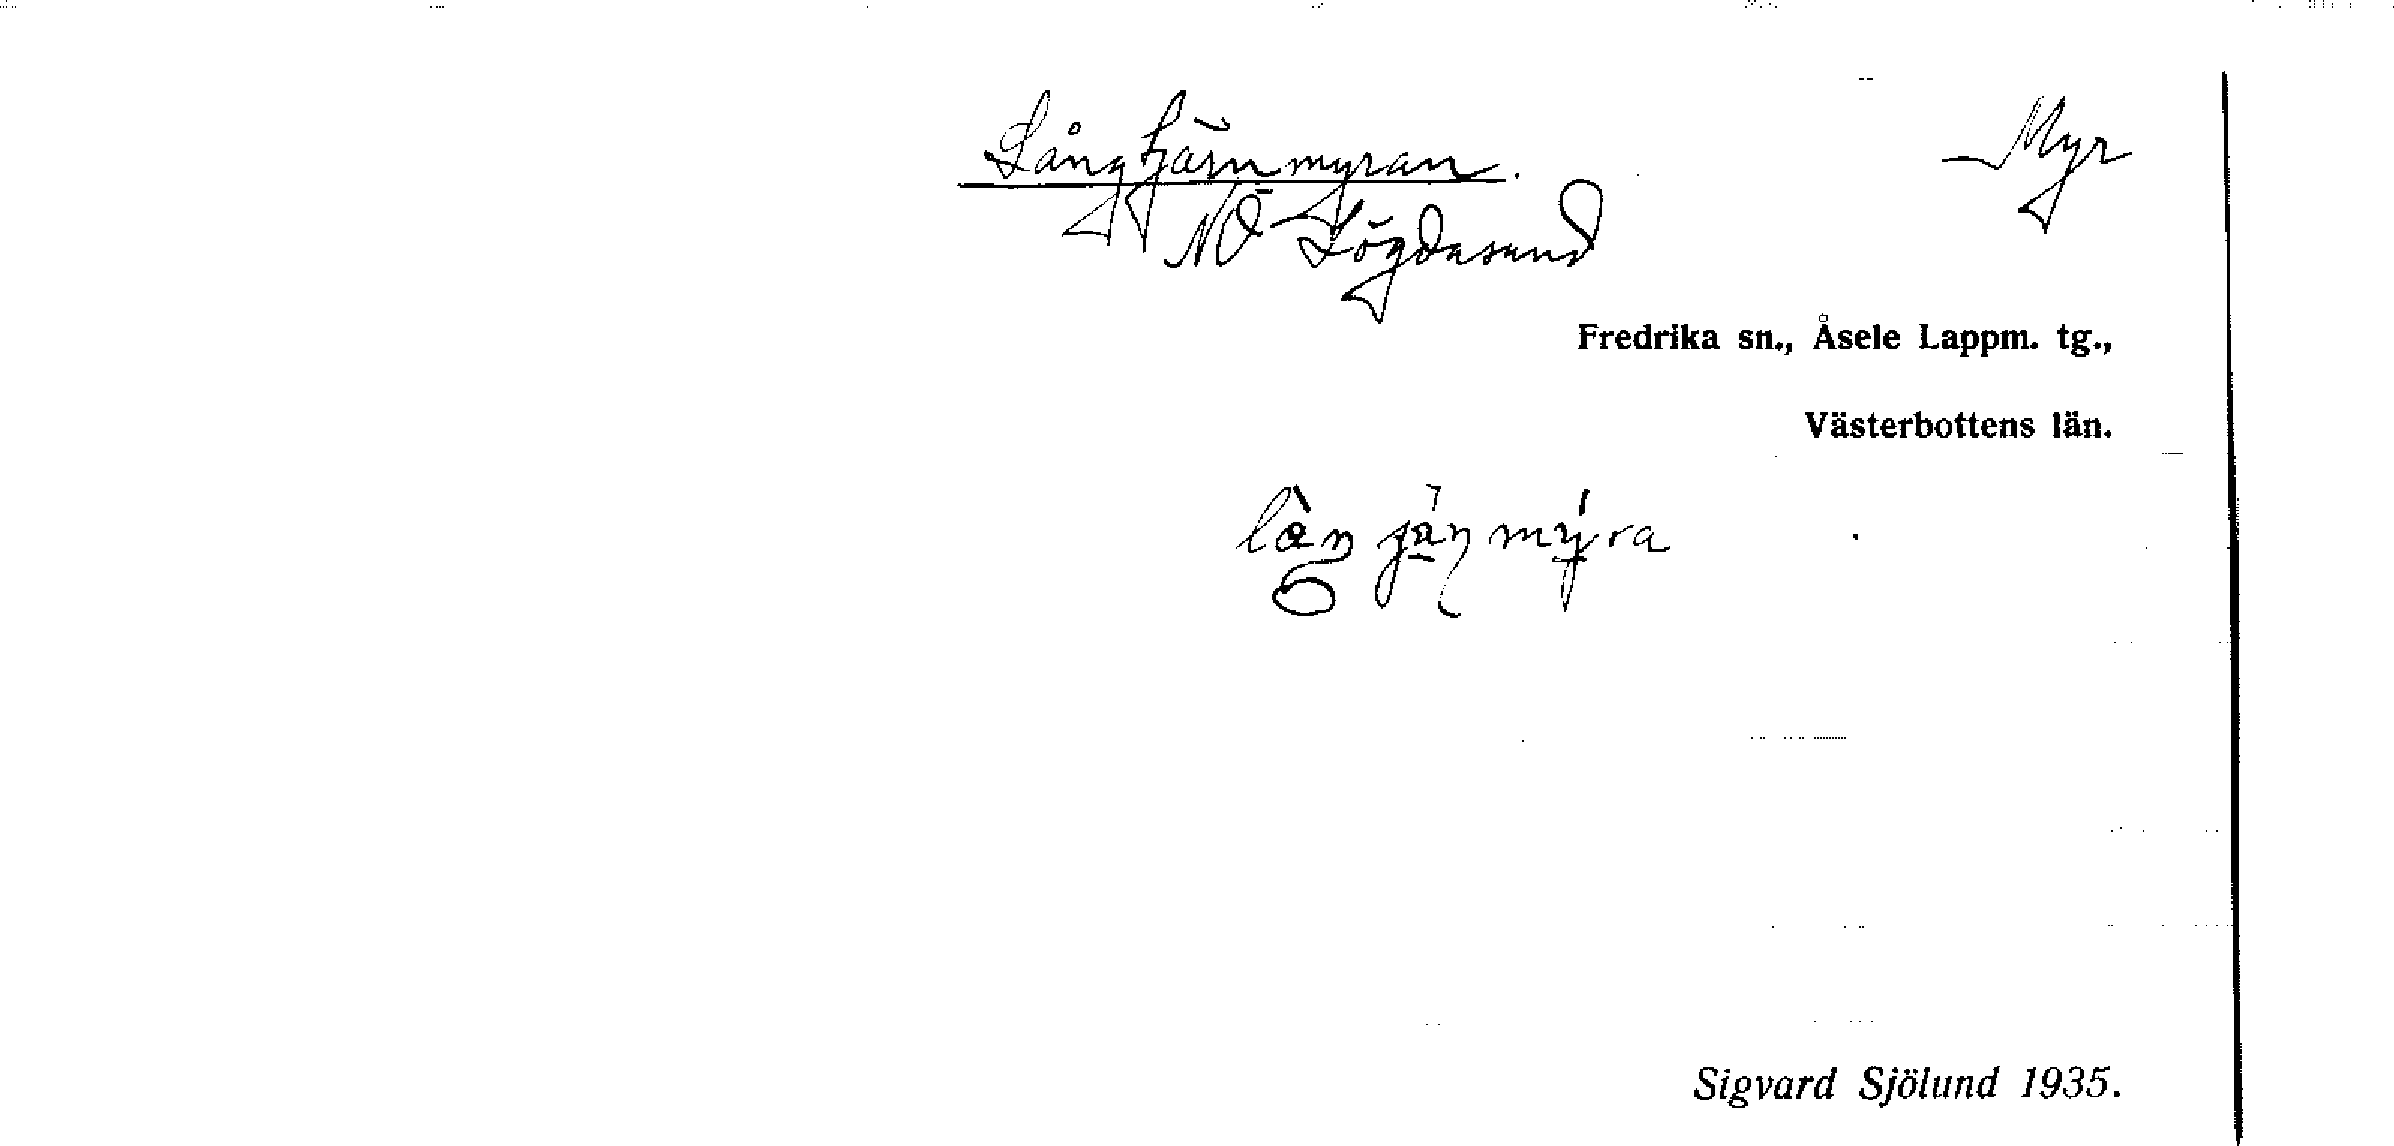 Långtjärnmyran. Myr
NÖ Lögdasund
Fredrika sn., Åsele Lappm. tg.,
Västerbottens län.
Sigvard Sjölund 1935.